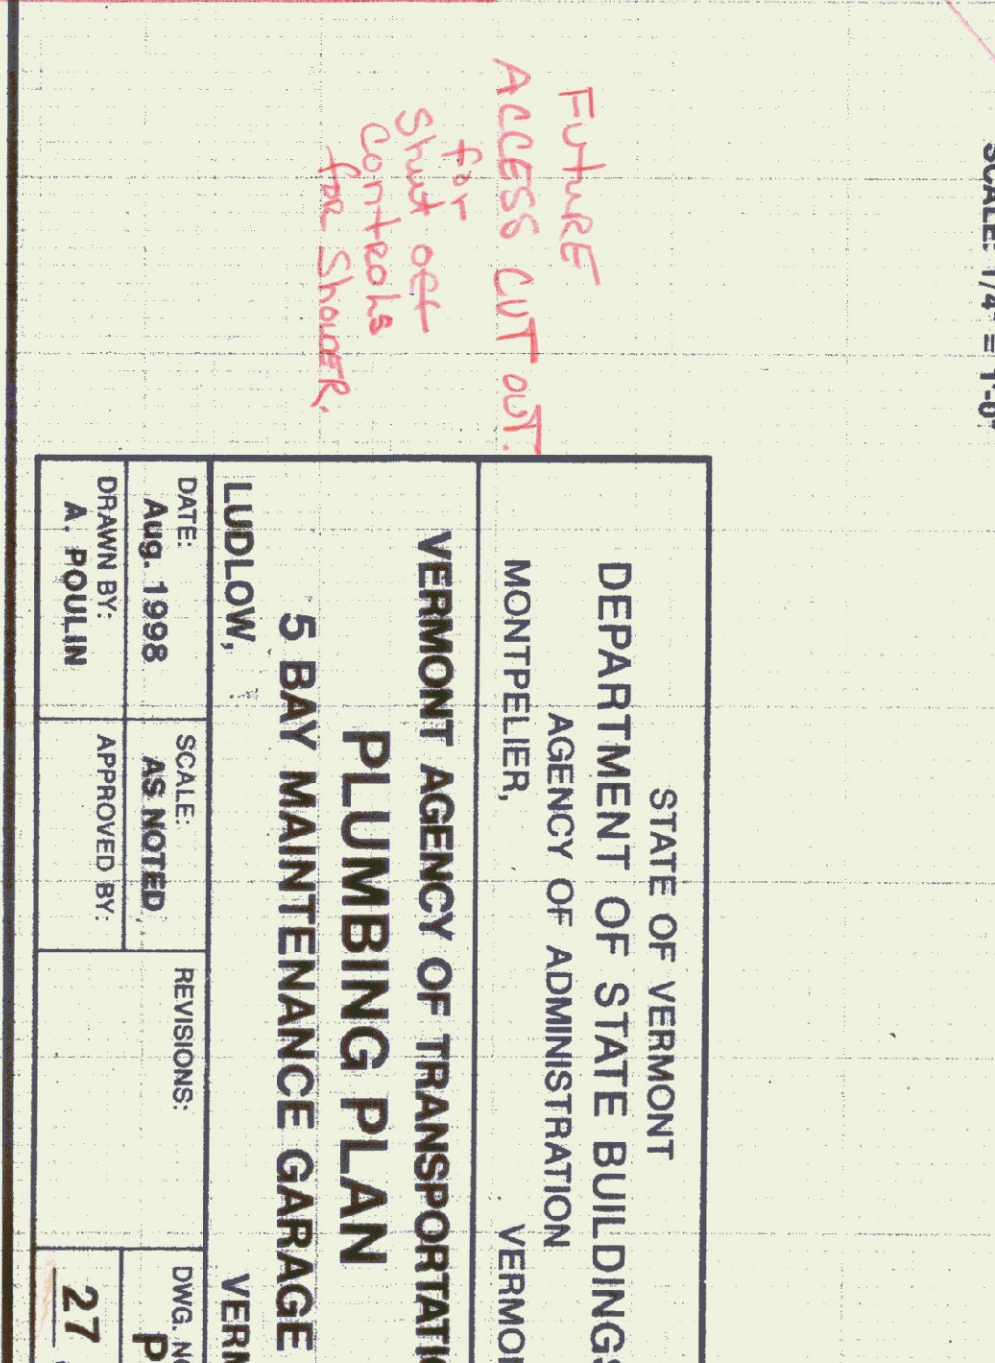 SCALE: 1/4" = 1'-0"
FUTURE
ACCESS CUT OUT.
for
Shut off
CONTROLS
FOR SHOWER.
STATE OF VERMONT
DEPARTMENT OF STATE BUILDINGS
AGENCY OF ADMINISTRATION
MONTPELIER, VERMO
VERMONT AGENCY OF TRANSPORTATIO
PLUMBING PLAN
5 BAY MAINTENANCE GARAGE
LUDLOW, VERM
DATE:
Aug. 1998
SCALE:
AS NOTED
REVISIONS:
DWG. NO
P
DRAWN BY:
A. POULIN
APPROVED BY:
27